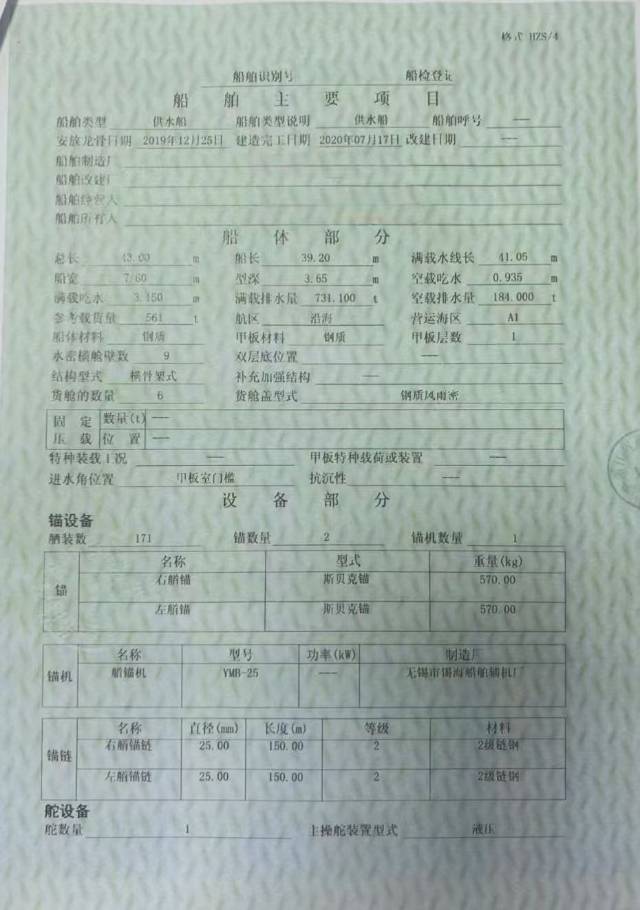 格式 HZS/4
船舶识别号 船检登记
船舶主要项目
船舶类型 供水船 船舶类型说明 供水船 船舶呼号 —
安放龙骨日期 2019年12月25日 建造完工日期 2020年07月17日 改建日期 —
船舶制造厂
船舶改建厂
船舶经营人
船舶所有人
船体部分
总长 43.00 m 船长 39.20 m 满载水线长 41.05 m
船宽 7.60 m 型深 3.65 m 空载吃水 0.935 m
满载吃水 3.150 m 满载排水量 731.100 t 空载排水量 184.000 t
参考载货量 561 t 航区 沿海 营运海区 A1
船体材料 钢质 甲板材料 钢质 甲板层数 1
水密横舱壁数 9 双层底位置 —
结构型式 横骨架式 补充加强结构 —
货舱的数量 6 货舱盖型式 钢质风雨密
固定 数量(t) —
压载 位置 —
特种装载工况 — 甲板特种载荷或装置 —
进水角位置 甲板室门槛 抗沉性 —
设备部分
锚设备
舾装数 171 锚数量 2 锚机数量 1
名称 型式 重量(kg)
锚 右艏锚 斯贝克锚 570.00
左艏锚 斯贝克锚 570.00
名称 型号 功率(kW) 制造厂
锚机 艏锚机 YMB-25 — 无锡市锡海船舶辅机厂
名称 直径(mm) 长度(m) 等级 材料
锚链 右艏锚链 25.00 150.00 2 2级链钢
左艏锚链 25.00 150.00 2 2级链钢
舵设备
舵数量 1 主操舵装置型式 液压